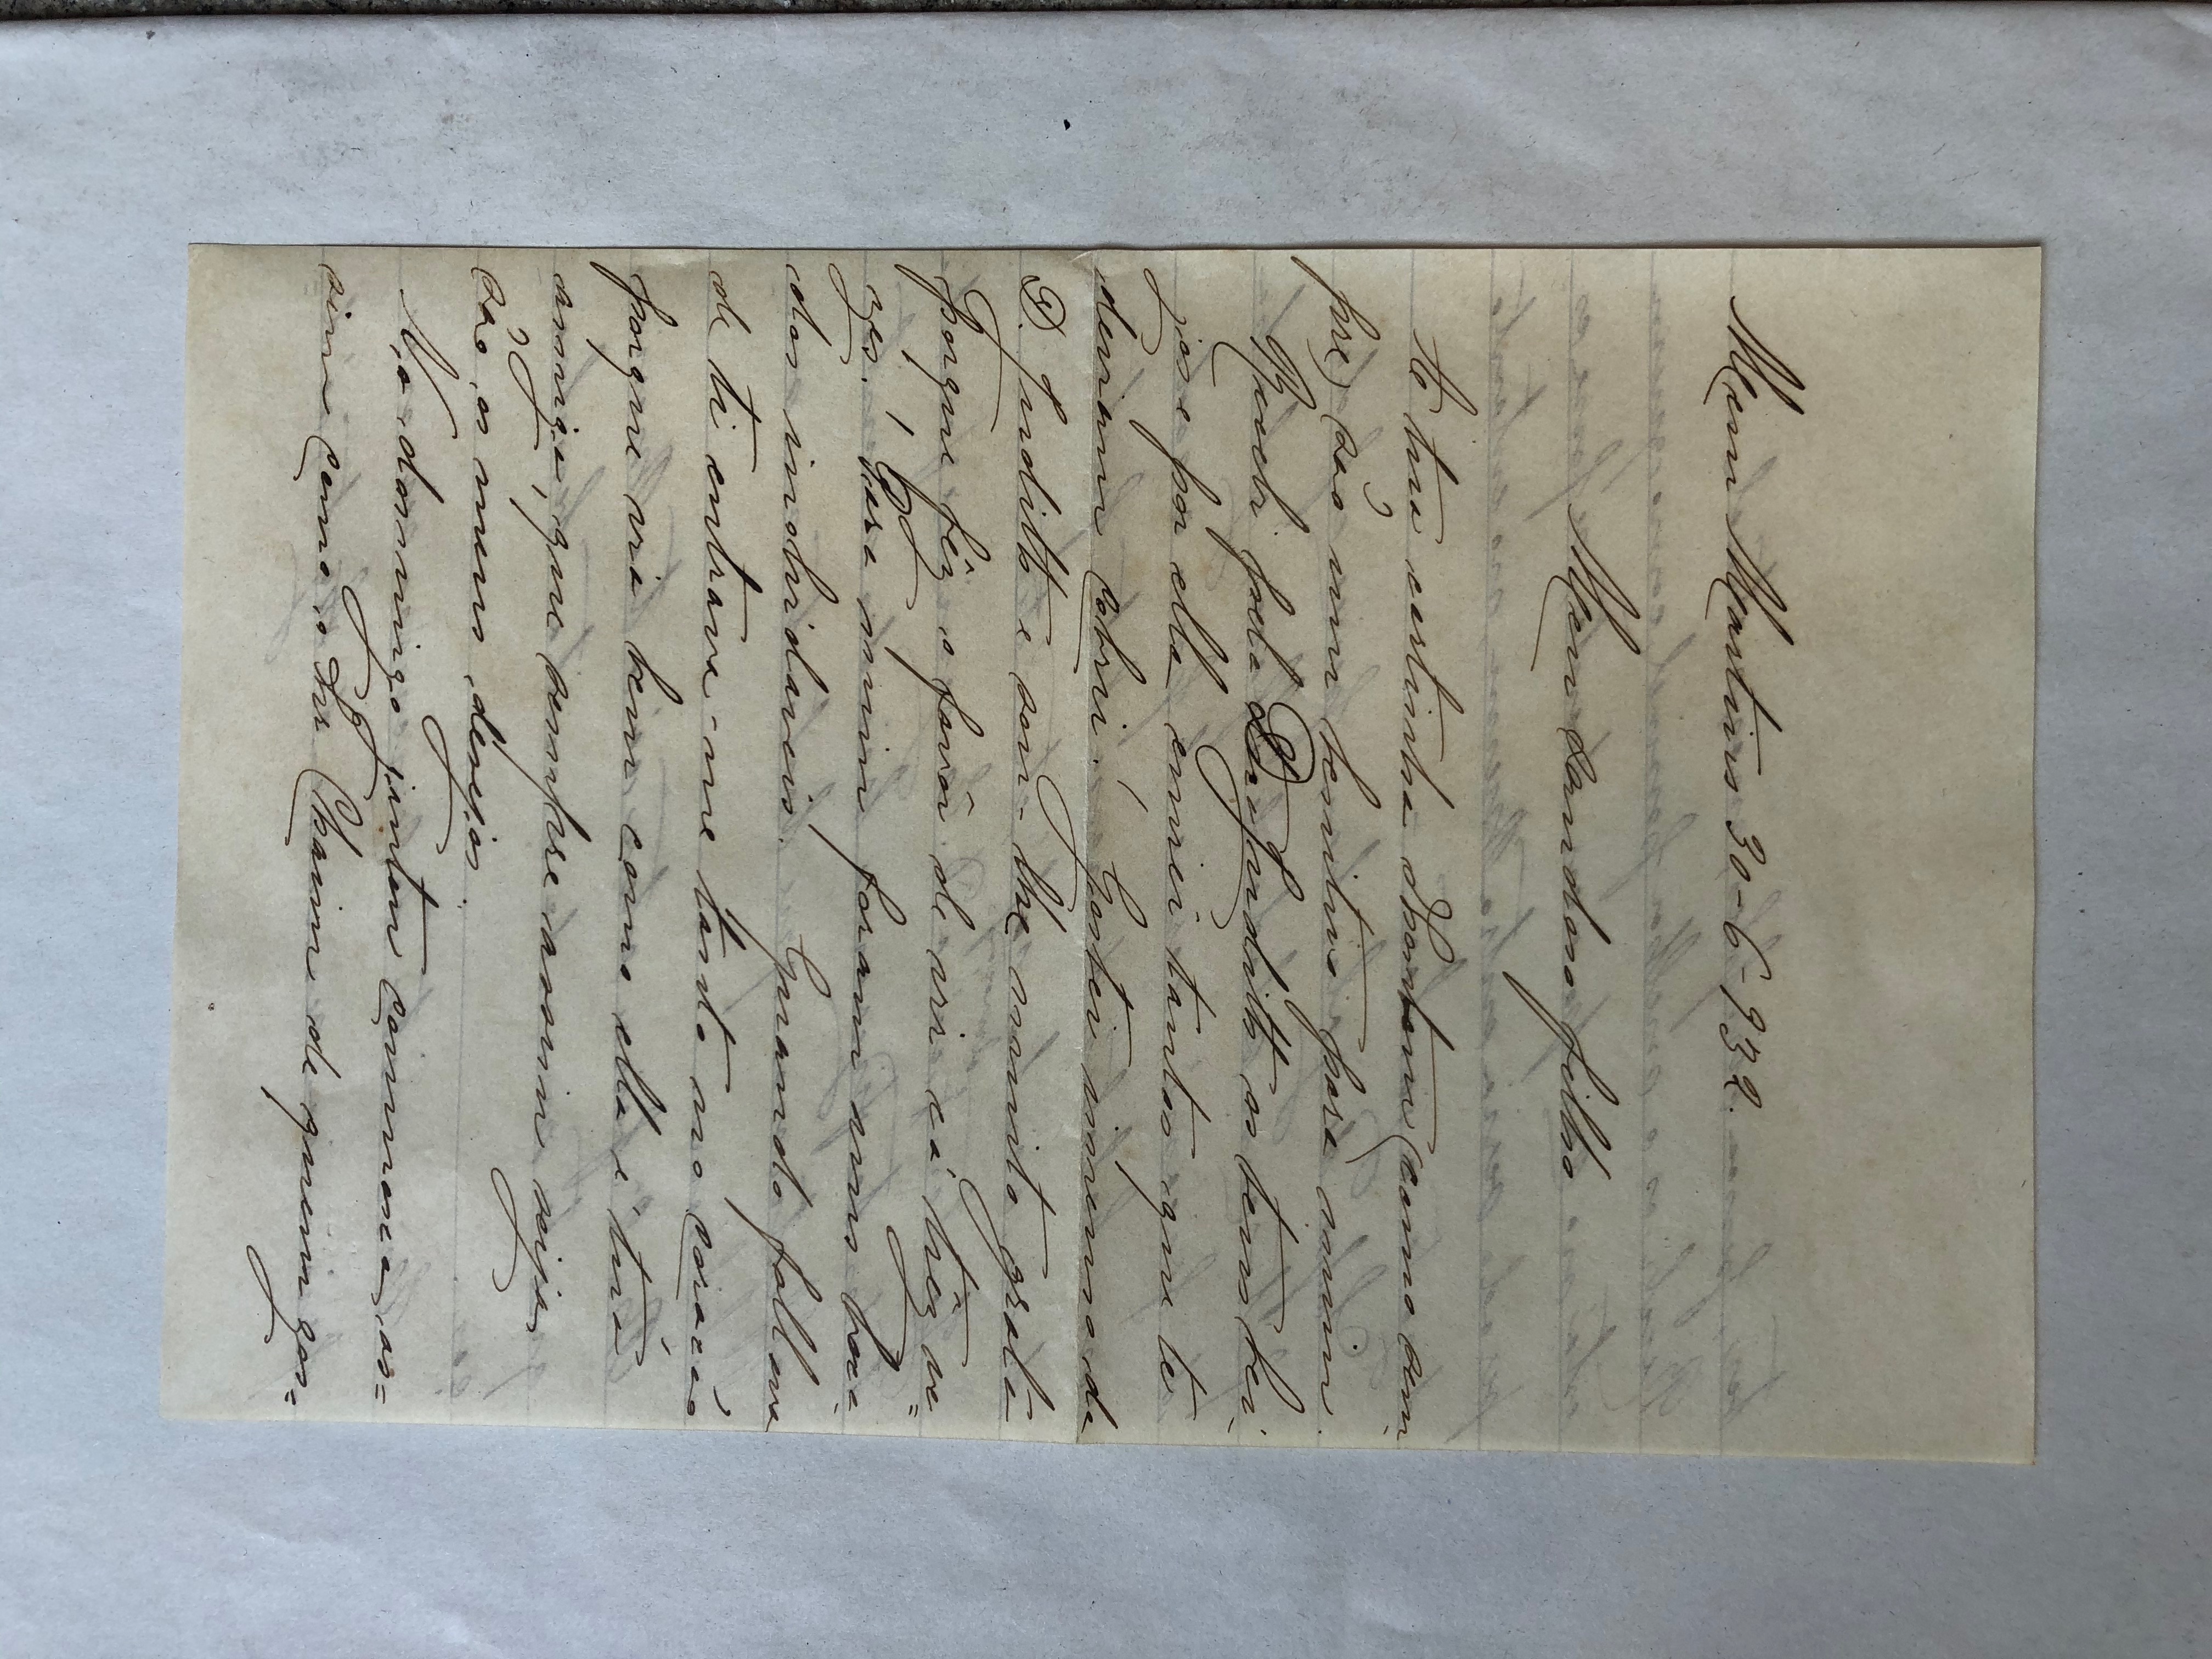 Mem Martins 30-6-932.
Meu saudoso filho
A tua cartinha d'hontem (como sem-
pre) são um lenitivo para mim.
Recebi pela D. Judith os teus bei-
jos e por ella enviei tantos que te
deviam cobrir! Gostei imenso da
D. Judith e sou-lhe muito grata
porque fêz o favôr de vir cá trêz ve=
zes! Para mim foram uns boca-
dos inolvidaveis. Quando fallava
de ti entrava-me tanto no coração
porque via bem como ella é tua
amiga, que sempre assim seija
são os meus desejos.
No domingo jantou comnosco, as=
sim como o Snr Chaim de quem gos=